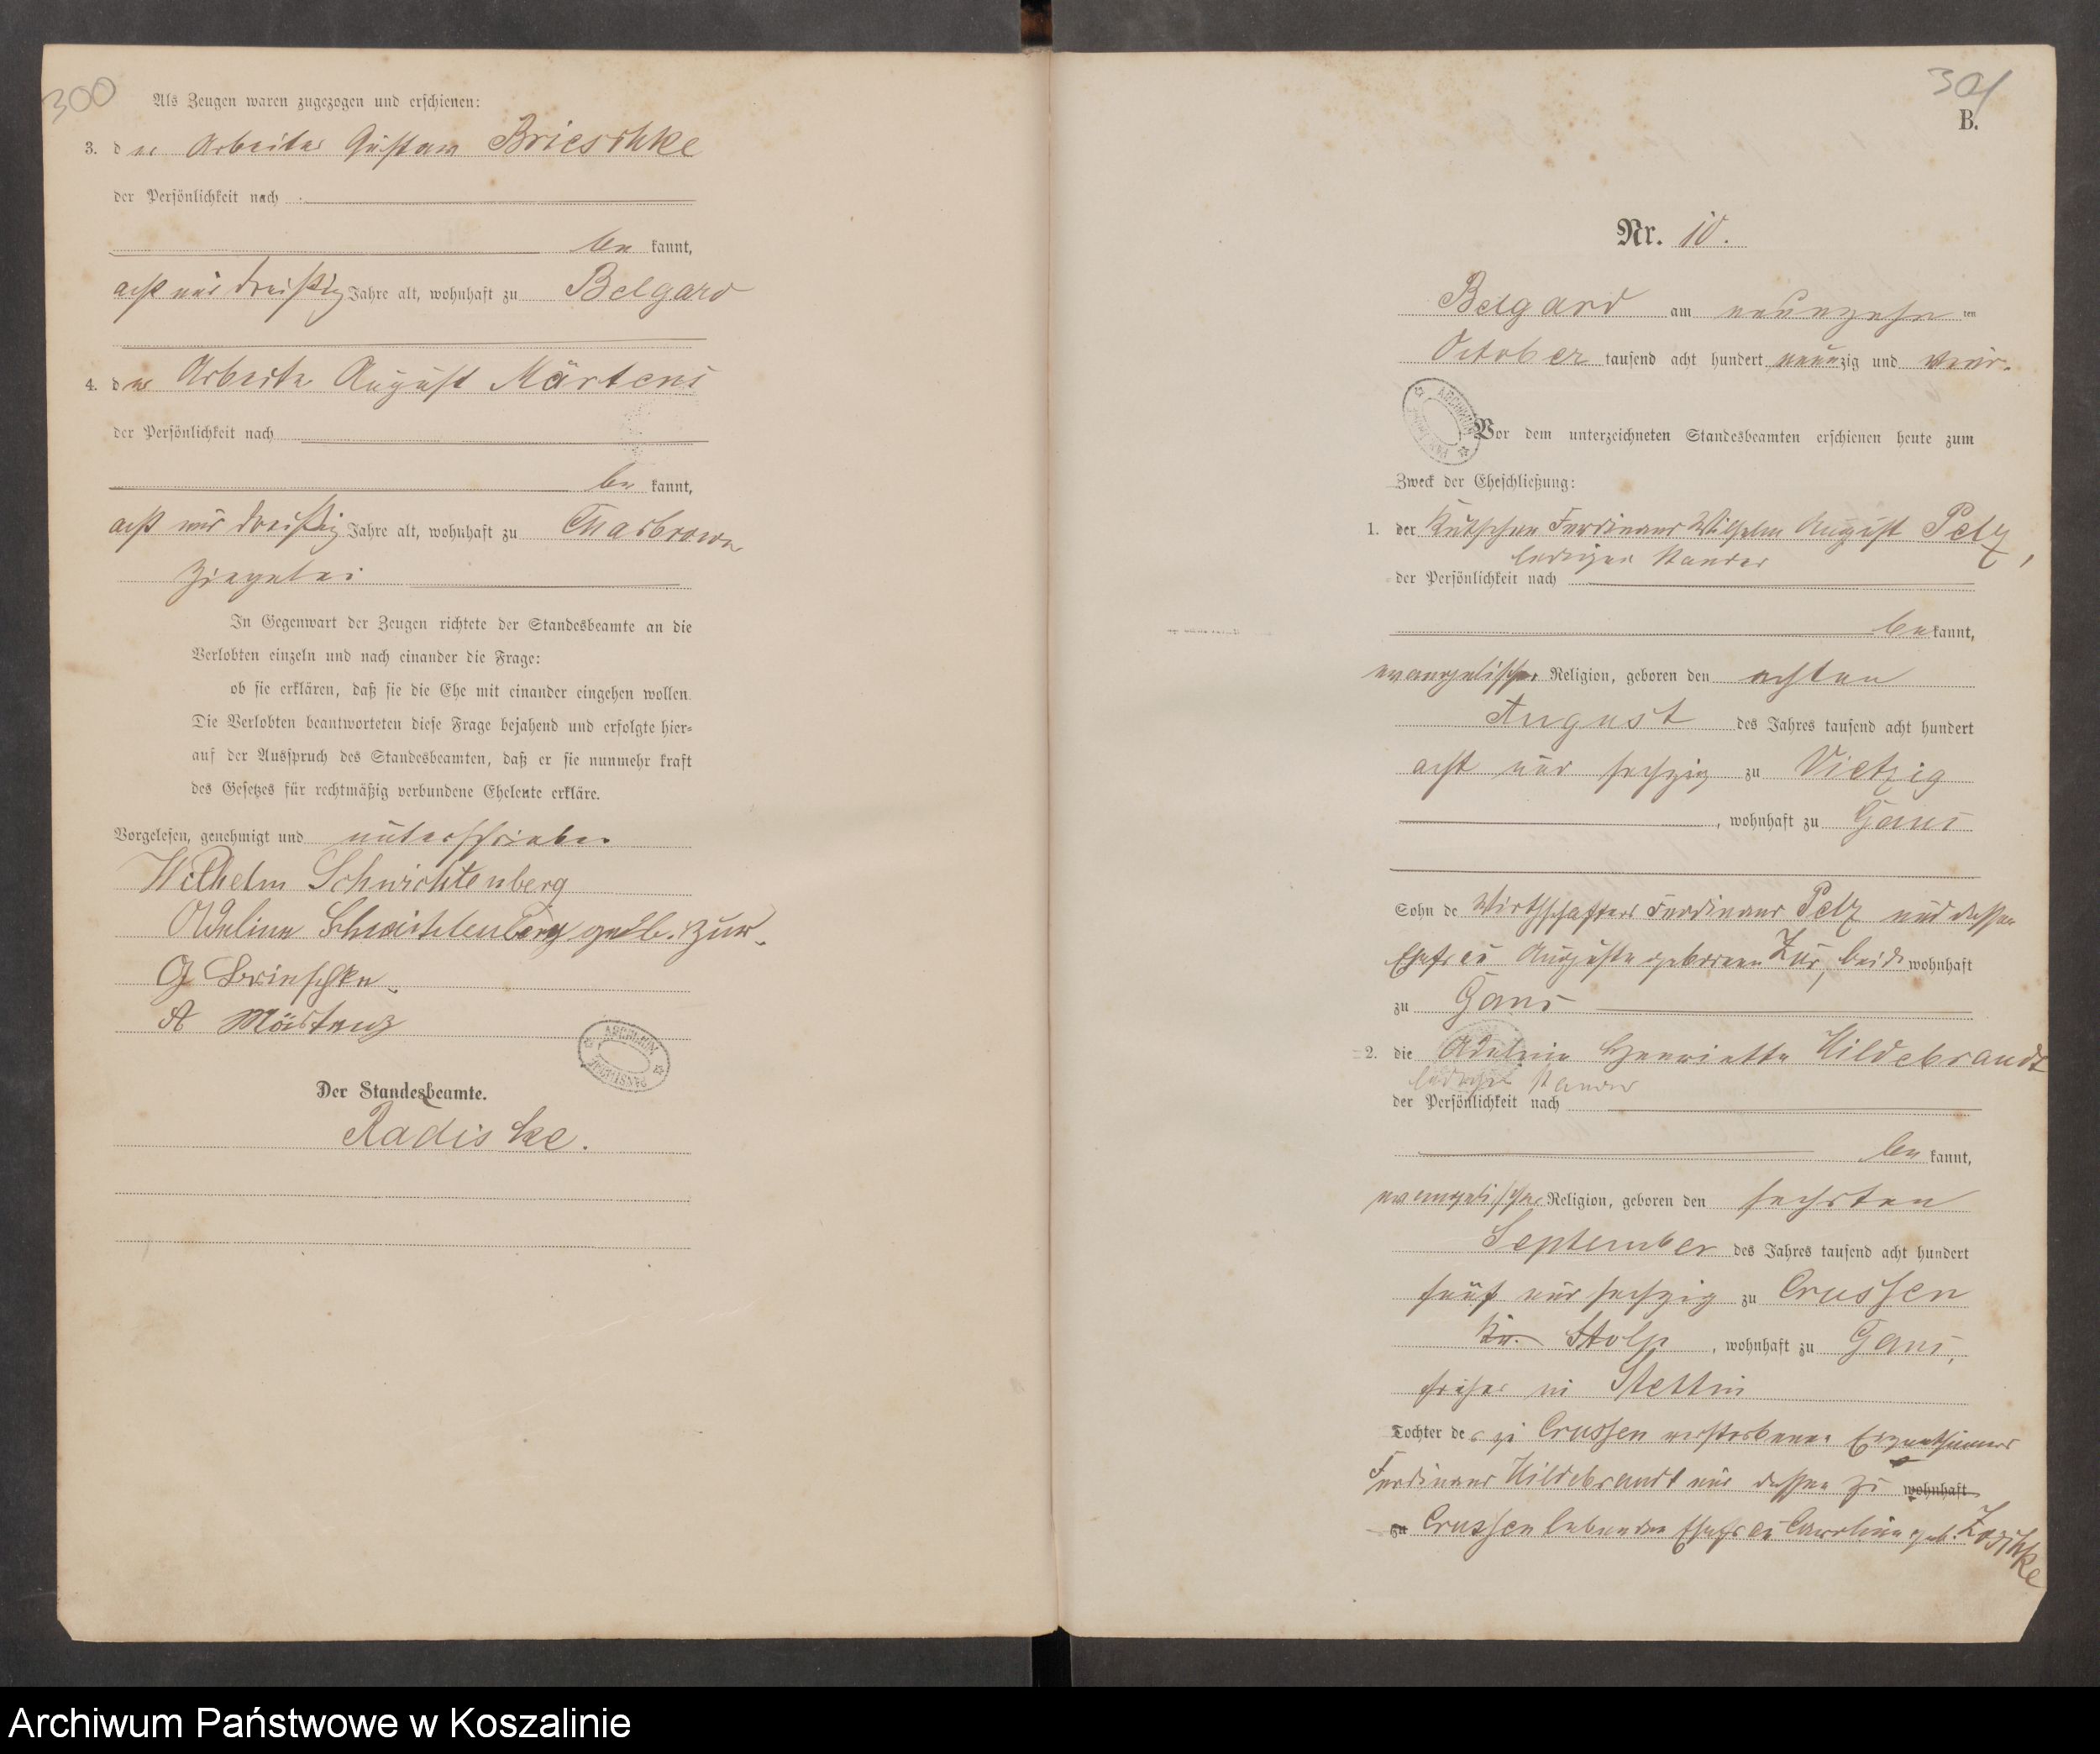 300
Als Zeugen waren zugezogen und erschienen:
3. der Arbeiter Gustav Brieschke
der Persönlichkeit nach
be kannt,
acht und dreißig Jahre alt, wohnhaft zu Belgard
4. der Arbeiter August Märtens
der Persönlichkeit nach
be kannt,
acht und dreißig Jahre alt, wohnhaft zu
Ziegelei
In Gegenwart der Zeugen richtete der Standesbeamte an die
Verlobten einzeln und nach einander die Frage:
ob sie erklären, daß sie die Ehe mit einander eingehen wollen.
Die Verlobten beantworteten diese Frage bejahend und erfolgte hier-
auf der Ausspruch des Standesbeamten, daß er sie nunmehr kraft
des Gesetzes für rechtmäßig verbundene Eheleute erkläre.
Vorgelesen, genehmigt und unterschrieben
Wilhelm Schwichtenberg
Adeline Schwichtenberg geb. Zur.
G Brieschke.
A Märtens
ARCHIWUM PAŃSTWOWE
Der Standesbeamte.
Radiske.
301
B.
Nr. 10.
Belgard am neunzehn ten
October tausend acht hundert neunzig und vier.
ARCHIWUM PAŃSTWOWE
Vor dem unterzeichneten Standesbeamten erschienen heute zum
Zweck der Eheschließung:
1. der Kutscher Ferdinand Wilhelm August Pelz,
ledigen Standes
der Persönlichkeit nach
be kannt,
evangelischer Religion, geboren den achten
August des Jahres tausend acht hundert
acht und sechzig zu Vietzig
, wohnhaft zu Gans
Sohn de Wirthschafters Ferdinand Pelz und dessen
Ehefrau Auguste geborenen Zur, beide wohnhaft
zu Gans
2. die Adeline Henriette Hildebrandt
ledigen Standes
der Persönlichkeit nach
be kannt,
evangelischer Religion, geboren den sechsten
September des Jahres tausend acht hundert
fünf und sechzig zu Crussen
Kr. Stolp , wohnhaft zu Gans,
früher in Stettin
Tochter des zu Crussen verstorbenen Eigenthümers
Ferdinand Hildebrandt und dessen zu wohnhaft
zu Crussen lebenden Ehefrau Caroline geb.
Archiwum Państwowe w Koszalinie